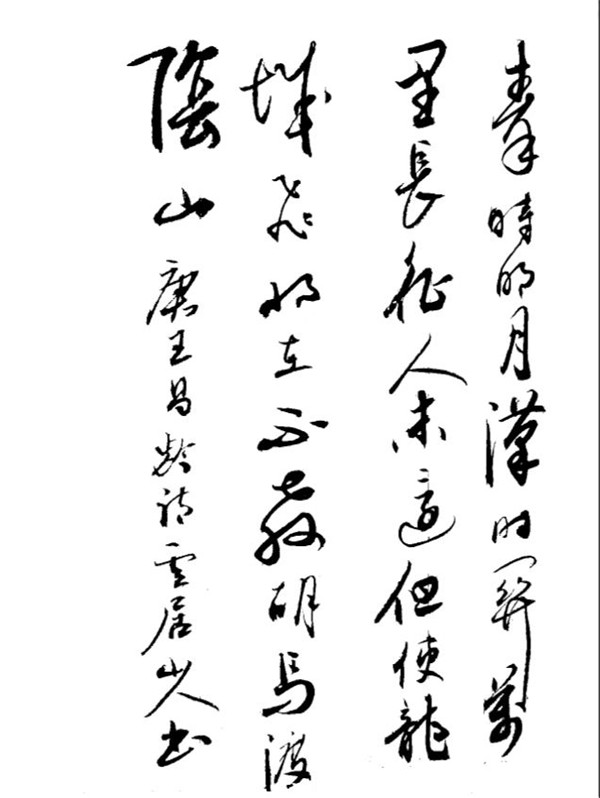 秦時明月漢时關萬
里長征人未還但使龍
城飛将在不教胡馬渡
陰山唐王昌齡詩雲居山人書